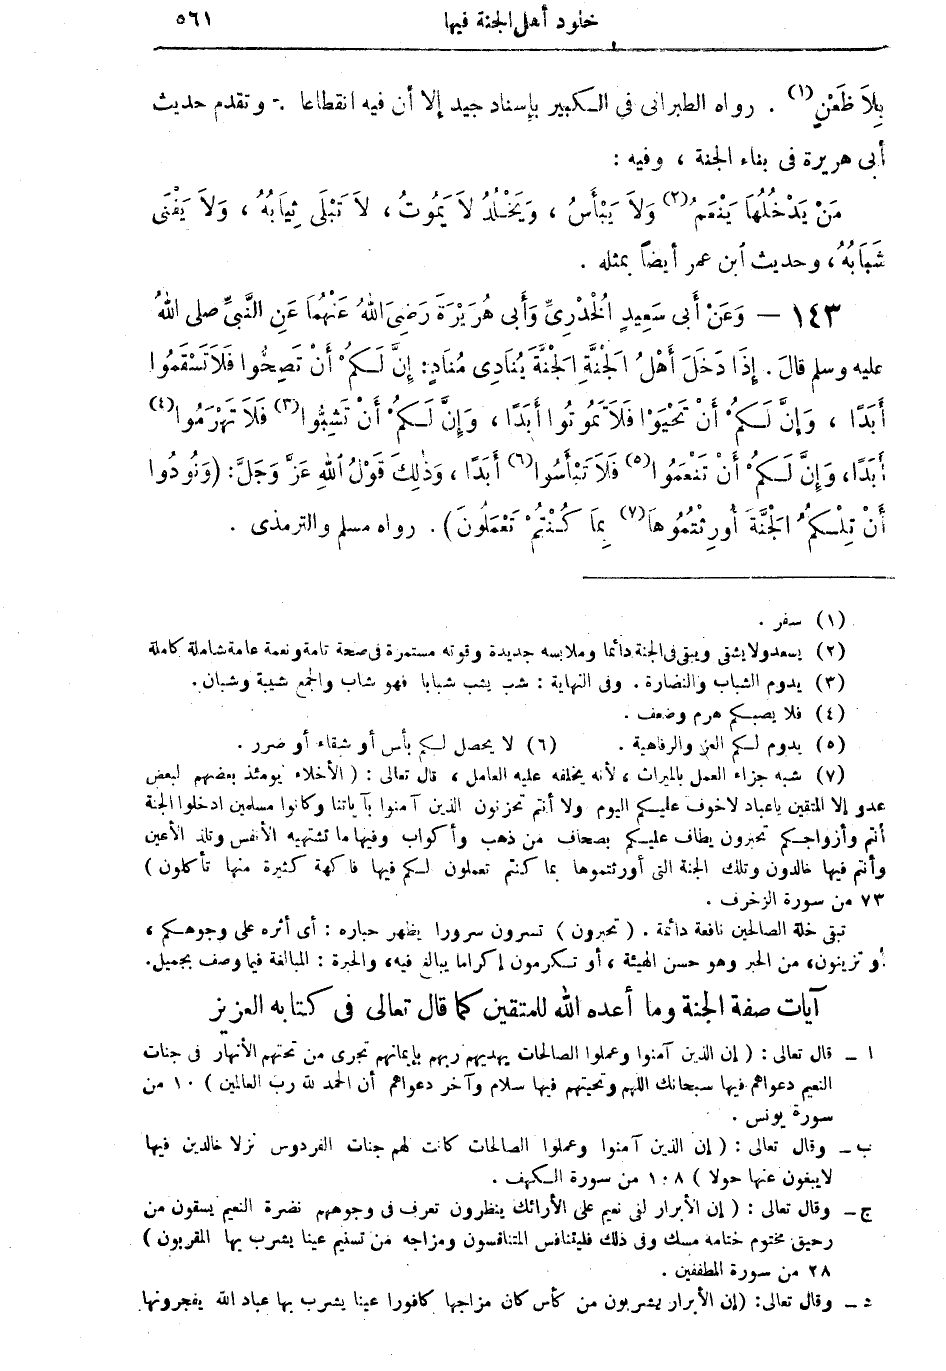 خلود أهل الجنة فيها ٥٦١
بِلاَ ظَعْنٍ(١) . رواه الطبرانى فى الكبير بإسناد جيد إلا أن فيه انقطاعا . وتقدم حديث
أبى هريرة فى بناء الجنة ، وفيه :
مَنْ يَدْخُلُهَا يَنْعَمُ(٢) وَلاَ يَبْأَسُ ، وَيَخْلُدُ لاَ يَمُوتُ ، لاَ تَبْلَى ثِيَابُهُ ، وَلاَ يَفْنَى
شَبَابُهُ ، وحديث ابن عمر أيضاً بمثله .
١٤٣ — وَعَنْ أَبى سَعِيدٍ الْخُدْرِىِّ وَأَبى هُرَيْرَةَ رَضِىَ اللهُ عَنْهُمَا عَنِ النَّبِىِّ صلى اللهُ
عليه وسلم قالَ . إِذَا دَخَلَ أَهْلُ الْجَنَّةِ الْجَنَّةَ يُنَادِى مُنَادٍ: إِنَّ لَكُمْ أَنْ تَصِحُّوا فَلاَ تَسْقَمُوا
أَبَدًا ، وَإِنَّ لَكُمْ أَنْ تَحْيَوْا فَلاَ تَمُوتُوا أَبَدًا ، وَإِنَّ لَكُمْ أَنْ تَشِبُّوا(٣) فَلاَ تَهْرَمُوا(٤)
أَبَدًا، وَإِنَّ لَكُمْ أَنْ تَنْعَمُوا(٥) فَلاَ تَبْأَسُوا(٦) أَبَدًا ، وَذٰلِكَ قَوْلُ اللهِ عَزَّ وَجَلَّ: (وَنُودُوا
أَنْ تِلْكُمُ الْجَنَّةَ أُورِثْتُمُوهَا(٧) بِمَا كُنْتُمْ تَعْمَلُونَ) . رواه مسلم والترمذى .
(١) سفر .
(٢) يسعد ولا يشقى ويبقى فى الجنة دائما وملابسه جديدة وقوته مستمرة فى صحة تامة ونعمة عامة شاملة كاملة
(٣) يدوم الشباب والنضارة . وفى النهاية : شب يشب شبابا فهو شاب والجمع شيبة وشبان .
(٤) فلا يصبكم هرم وضعف .
(٥) يدوم لكم العز والرفاهية . (٦) لا يحصل لكم بأس أو شقاء أو ضرر .
(٧) شبه جزاء العمل بالميراث ، لأنه يخلفه عليه العامل ، قال تعالى : ( الأخلاء يومئذ بعضهم لبعض
عدو إلا المتقين ياعباد لاخوف عليكم اليوم ولا أنتم تحزنون الذين آمنوا بآياتنا وكانوا مسلمين ادخلوا الجنة
أنتم وأزواجكم تحبرون يطاف عليكم بصحاف من ذهب وأكواب وفيها ما تشتهيه الأنفس وتلذ الأعين
وأنتم فيها خالدون وتلك الجنة التى أورثتموها بما كنتم تعملون لكم فيها فاكهة كثيرة منها تأكلون )
٧٣ من سورة الزخرف .
تبقى خلة الصالحين نافعة دائمة . ( تحبرون ) تسرون سرورا يظهر حباره : أى أثره على وجوهكم ،
أو تزينون، من الحبر وهو حسن الهيئة ، أو تكرمون إكراما يبالغ فيه، والحبرة : المبالغة فيما وصف بجميل.
آيات صفة الجنة وما أعده الله للمتقين كما قال تعالى فى كتابه العزيز
ا — قال تعالى : ( إن الذين آمنوا وعملوا الصالحات يهديهم ربهم بإيمانهم تجرى من تحتهم الأنهار فى جنات
النعيم دعواهم فيها سبحانك اللهم وتحيتهم فيها سلام وآخر دعواهم أن الحمد لله رب العالمين ) ١٠ من
سورة يونس .
ب — وقال تعالى : ( إن الذين آمنوا وعملوا الصالحات كانت لهم جنات الفردوس نزلا خالدين فيها
لايبغون عنها حولا ) ١٠٨ من سورة الكهف .
ج — وقال تعالى : ( إن الأبرار لفى نعيم على الأرائك ينظرون تعرف فى وجوههم نضرة النعيم يسقون من
رحيق مختوم ختامه مسك وفى ذلك فليتنافس المتنافسون ومزاجه من تسنيم عينا يشرب بها المقربون )
٢٨ من سورة المطففين .
د — وقال تعالى: (إن الأبرار يشربون من كأس كان مزاجها كافورا عينا يشرب بها عباد الله يفجرونها